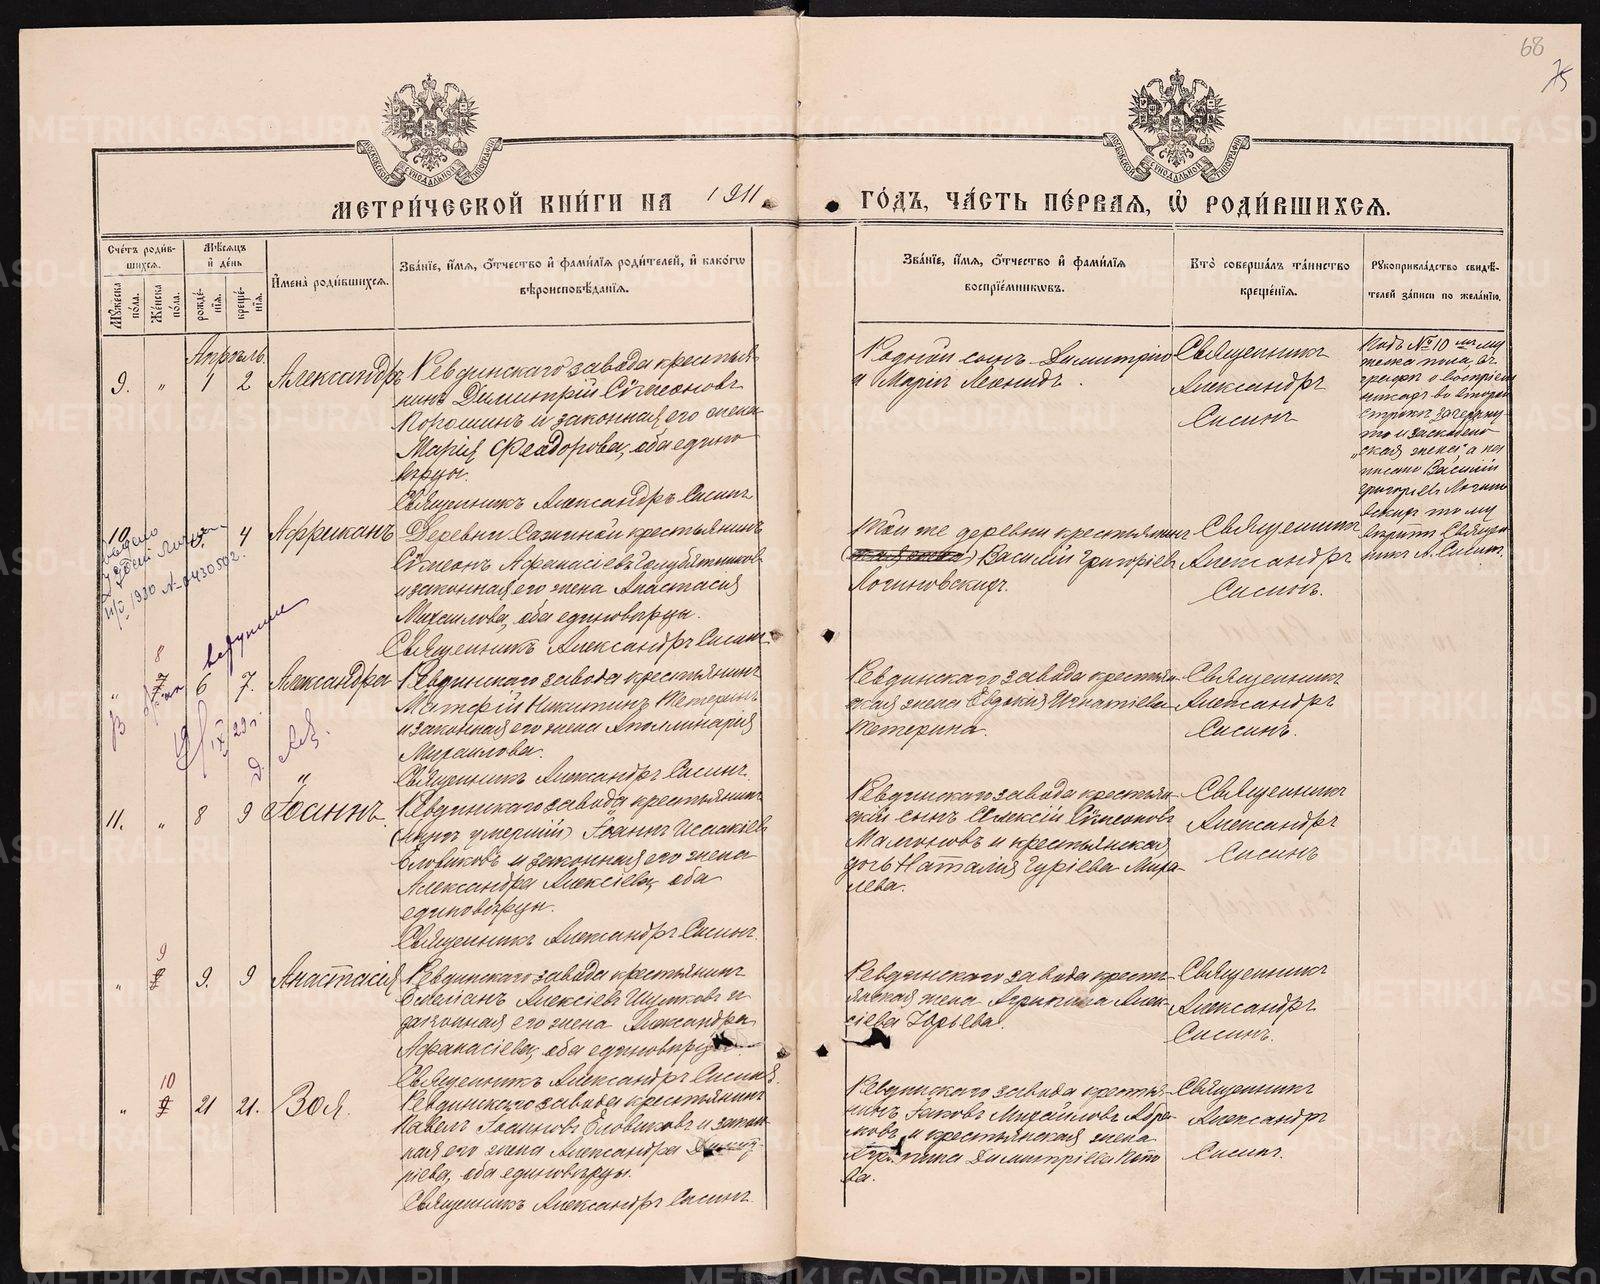 68
75
МЕТРИ́ЧЕСКОЙ КНИ́ГИ НА 1911
ГО́ДЪ, ЧА́СТЬ ПЕ́РВАѦ, Ѡ҆ РОДИ́ВШИХСѦ.
Сче́тъ роди́в-
шихсѧ.
Мѣ́сѧцъ
и҆ де́нь
Мꙋ́жеска по́ла.
Же́нска по́ла.
рожде́-
нїѧ.
креще́-
нїѧ.
И҆мена̀ роди́вшихсѧ.
Зва́нїе, и҆́мѧ, ѻ҆́тчество и҆ фами́лїѧ роди́телей, и҆ како́гѡ
вѣроисповѣ́данїѧ.
Зва́нїе, и҆́мѧ, ѻ҆́тчество и҆ фами́лїѧ
воспрїе́мникѡвъ.
Кто̀ соверша́лъ та́инство
креще́нїѧ.
Рꙋкоприкла́дство свидѣ́-
телей за́писи по жела́нїю.
Апрѣль.
9.
"
1
2
Александръ
Ревдинскаго завода крестья-
нинъ Димитрій Сѵмеоновъ
Порошинъ и законная его жена
Марія Феодорова, оба едино
вѣрцы.
Священникъ Александръ Сисинъ
Родной сынъ Димитрій
и Марія Леонидъ.
Священникъ
Александръ
Сисинъ
Подъ № 10 му
жеска пола, въ
графѣ о воспріем
никахъ во второй
строкѣ зачеркну-
то и заскоблено
"ская жена", а на
писано Василій
Григорьевъ Логино
вскихъ
10
4
Африканъ
Деревни Сажиной крестьянинъ
Сѵмеонъ Афанасіевъ Голубятниковъ
и законная его жена Анастасія
Михаилова, оба единовѣрцы.
Священникъ Александръ Сисинъ
Той же деревни крестьянинъ
Василій Григоріевъ
Логиновскихъ.
Священникъ
Александръ
Сисинъ.
8
7
6
7.
Александра
Ревдинскаго завода крестьянинъ
Матѳій Никитинъ Кетеринъ
и законная его жена Аполлинарія
Михаилова.
Священникъ Александръ Сисинъ.
Ревдинскаго завода крестьян-
ская жена Евдокія Игнатіева
Кетерина.
Священникъ
Александръ
Сисинъ.
11.
"
8
9
Іоаннъ.
Ревдинскаго завода крестьянинъ
(нынѣ умершій) Іоаннъ Исаакіевъ
Словиковъ и законная его жена
Александра Алексіева, оба
единовѣрцы.
Священникъ Александръ Сисинъ.
Ревдинскаго завода крестьян-
скій сынъ Алексій Сѵмеоновъ
Мамоновъ и крестьянская
дочь Наталія Гуріева Мира-
лева.
Священникъ
Александръ
Сисинъ
9
8
9.
9
Анастасія
Ревдинскаго завода крестьянинъ
Алексіевъ Шумковъ и
законная его жена Александра
Афанасіева, оба единовѣрцы.
Священникъ Александръ Сисинъ.
Ревдинскаго завода кресть-
янская жена Агрипина Алек-
сіева Юрьева.
Священникъ
Александръ
Сисинъ.
10
9
21
21.
Зоя.
Ревдинскаго завода крестьянинъ
Павелъ Іоанновъ Словиковъ и закон-
ная его жена Александра Димит-
ріева, оба единовѣрцы.
Священникъ Александръ Сисинъ.
Ревдинскаго завода крестья-
нинъ Іаковъ Михайловъ Абра-
мовъ и крестьянская жена
Агрипина Димитріева Кето
ва.
Священникъ
Александръ
Сисинъ.